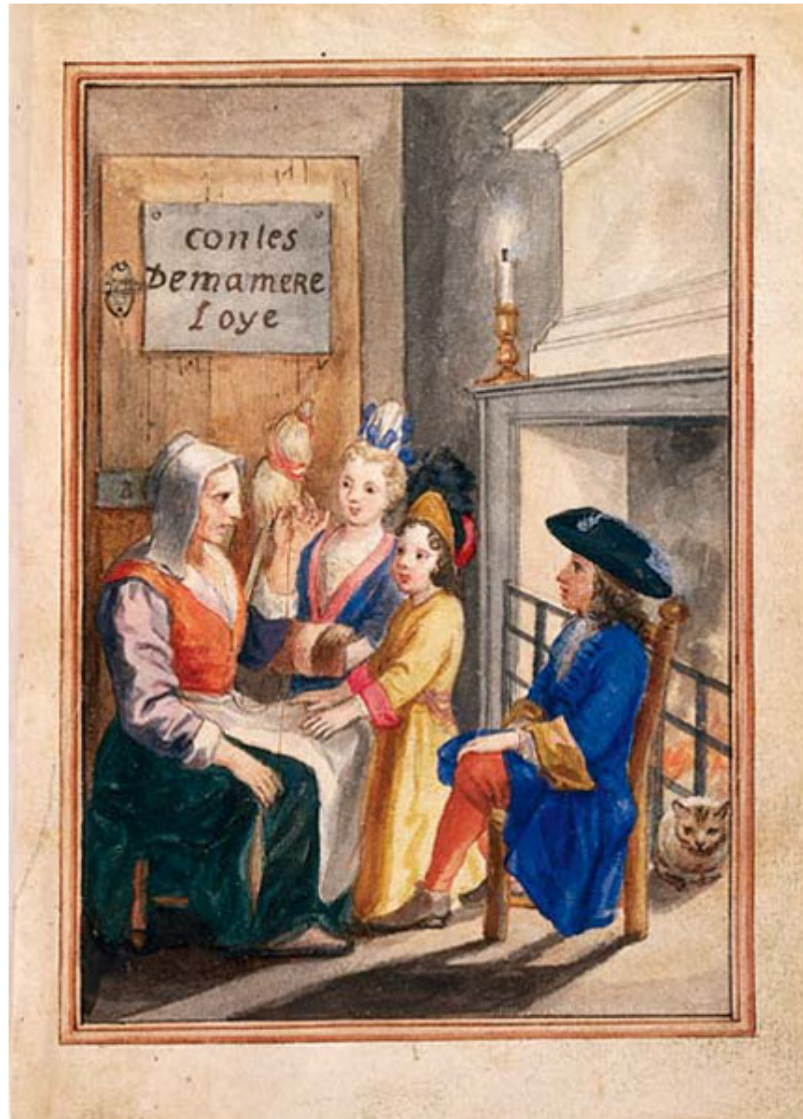 contes
DemamERE
Loye